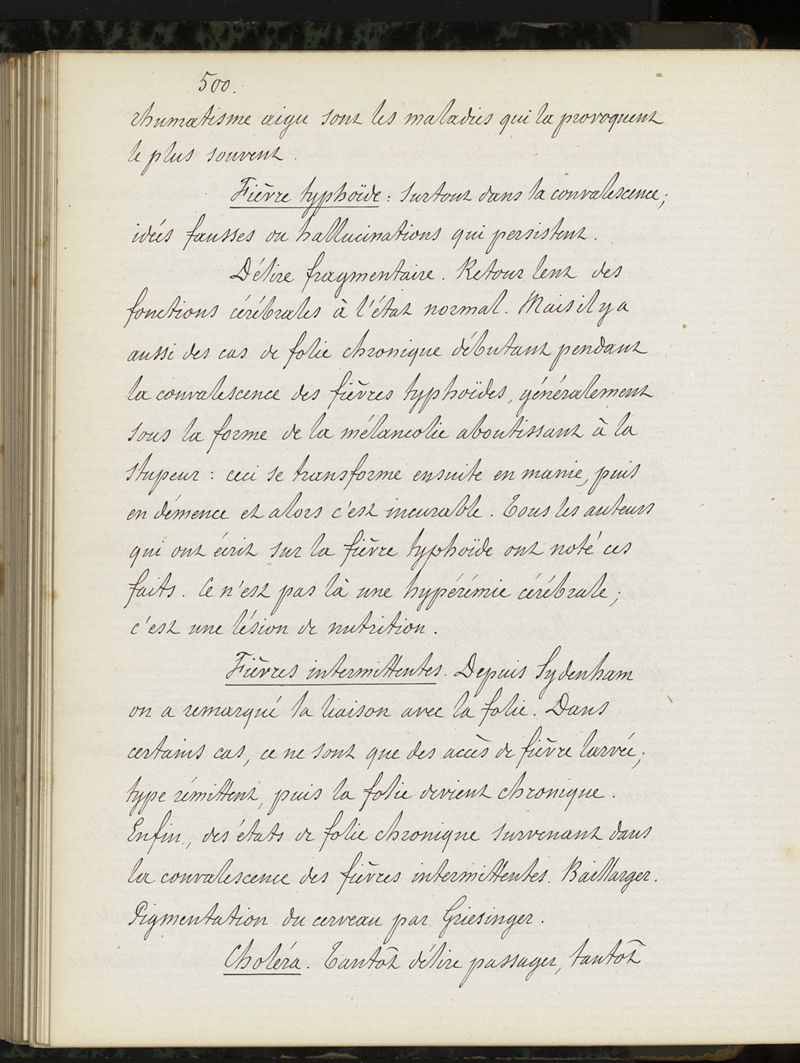 500.
rhumatisme aigu sont les maladies qui la provoquent
le plus souvent.
Fièvre typhoïde : surtout dans la convalescence ;
idées fausses ou hallucinations qui persistent.
Délire fragmentaire. Retour lent des
fonctions cérébrales à l'état normal. Mais il y a
aussi des cas de folie chronique débutant pendant
la convalescence des fièvres typhoïdes, généralement
sous la forme de la mélancolie aboutissant à la
stupeur : ceci se transforme ensuite en manie, puis
en démence et alors c'est incurable. Tous les auteurs
qui ont écrit sur la fièvre typhoïde ont noté ces
faits. Ce n'est pas là une hypérémie cérébrale ;
c'est une lésion de nutrition.
Fièvres intermittentes. Depuis Sydenham
on a remarqué la liaison avec la folie. Dans
certains cas, ce ne sont que des accès de fièvre larvée ;
type rémittent, puis la folie devient chronique.
Enfin, des états de folie chronique survenant dans
la convalescence des fièvres intermittentes. Baillarger.
Pigmentation du cerveau par Griesinger.
Choléra. Tantôt délire passager, tantôt